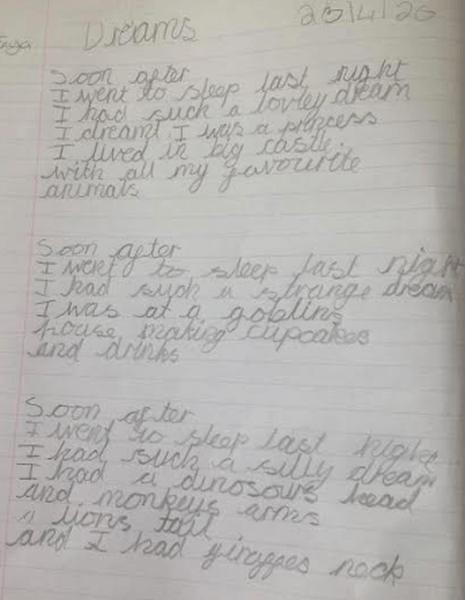 Dreams 20/4/20
Soon after
I went to sleep last night
I had such a lovley dream
I dreamt I was a princess
I lived in big castle.
with all my favourite
animals
Soon after
I went to sleep last night
I had such a strange dream
I was at a goblins
house making cupcakes
and drinks
Soon after
I went to sleep last night
I had such a silly dream
I had a dinosours head
and monkeys arms
" lions tail
and I had giraffes neck